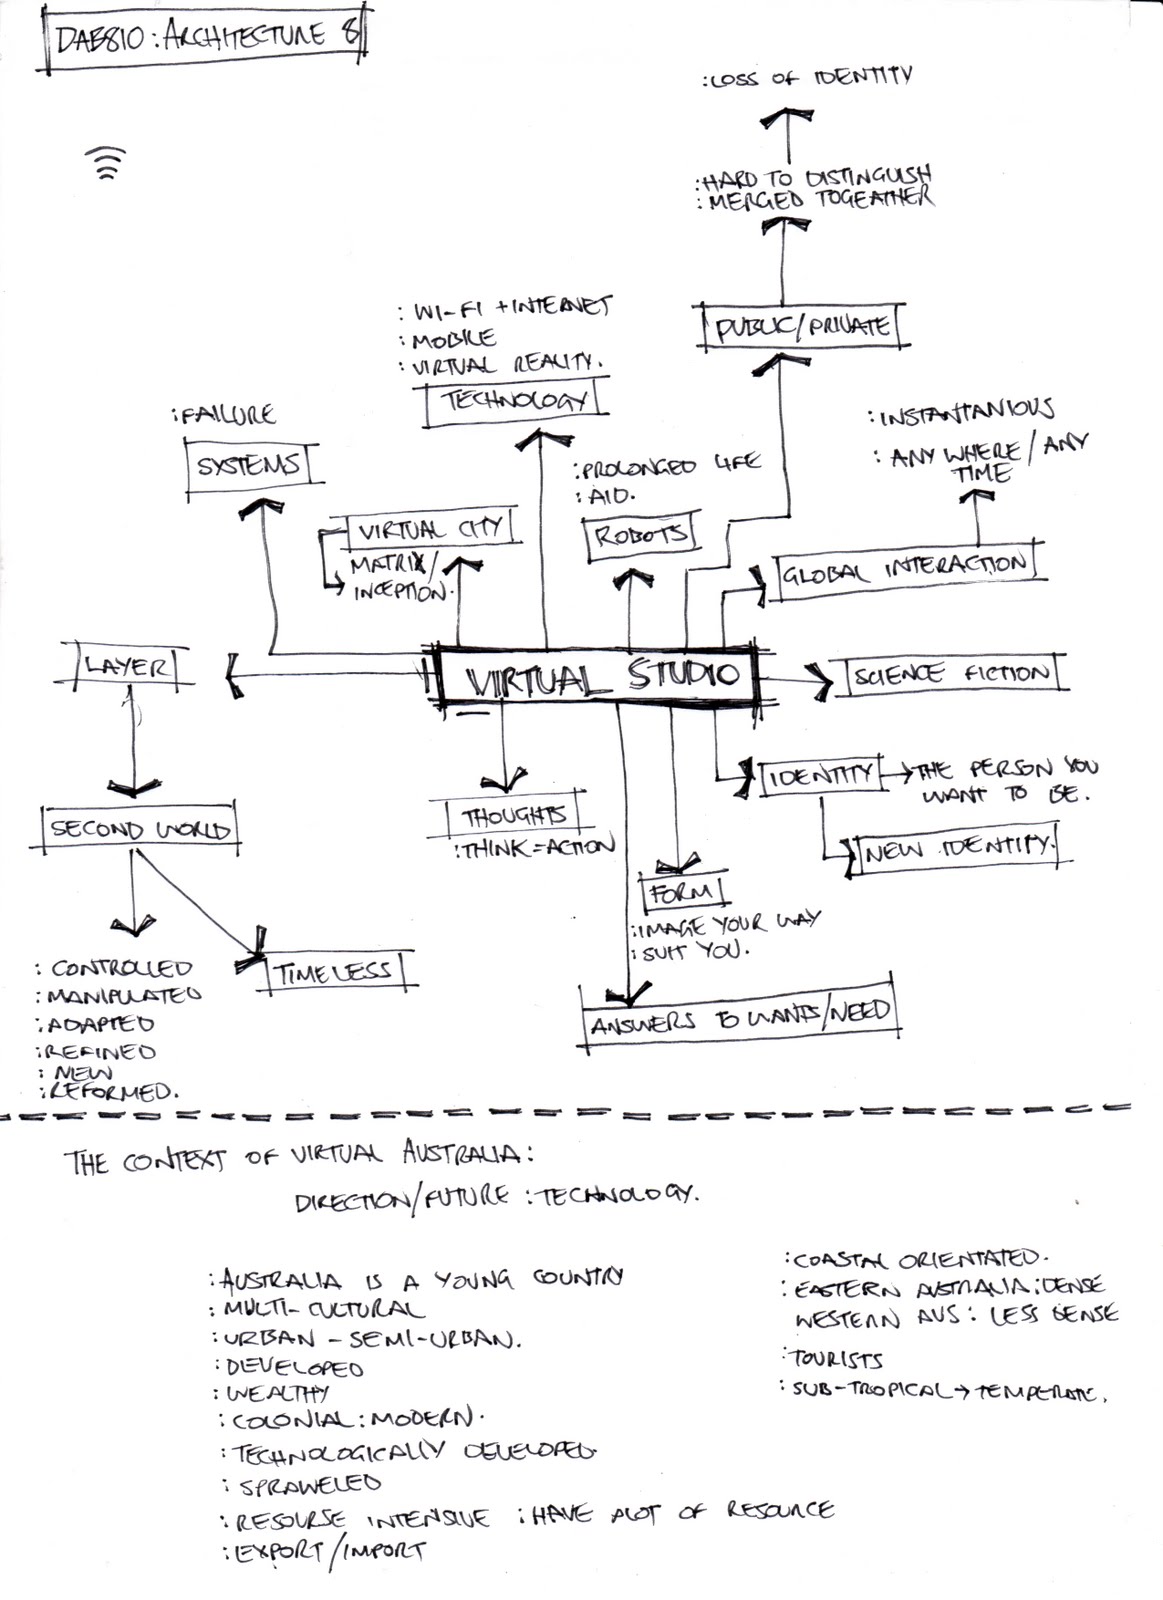 DAB810 : ARCHITECTURE 8
: LOSS OF IDENTITY
: HARD TO DISTINGUISH
: MERGED TOGEATHER
PUBLIC/PRIVATE
: WI-FI + INTERNET
: MOBILE
: VIRTUAL REALITY.
TECHNOLOGY
: FAILURE
SYSTEMS
: INSTANTANIOUS
: ANY WHERE/ANY
TIME
: PROLONGED LIFE
: AID.
ROBOTS
VIRTUAL CITY
MATRIX/
INCEPTION.
GLOBAL INTERACTION
LAYER
VIRTUAL STUDIO
SCIENCE FICTION
IDENTITY → THE PERSON YOU
WANT TO BE.
NEW IDENTITY.
SECOND WORLD
THOUGHTS
: THINK = ACTION
FORM
: IMAGE YOUR WAY
: SUIT YOU.
TIMELESS
: CONTROLLED
: MANIPULATED
: ADAPTED
: REFINED
: NEW
: REFORMED.
ANSWERS TO WANTS/NEED
THE CONTEXT OF VIRTUAL AUSTRALIA:
DIRECTION/FUTURE : TECHNOLOGY.
: AUSTRALIA IS A YOUNG COUNTRY
: MULTI-CULTURAL
: URBAN - SEMI-URBAN.
: DEVELOPED
: WEALTHY
: COLONIAL : MODERN.
: TECHNOLOGICALLY DEVELOPED.
: SPRAWELED
: RESOURSE INTENSIVE : HAVE ALOT OF RESOURCE
: EXPORT/IMPORT
: COASTAL ORIENTATED.
: EASTERN AUSTRALIA : DENSE
WESTERN AUS : LESS DENSE
: TOURISTS
: SUB-TROPICAL → TEMPERATE.